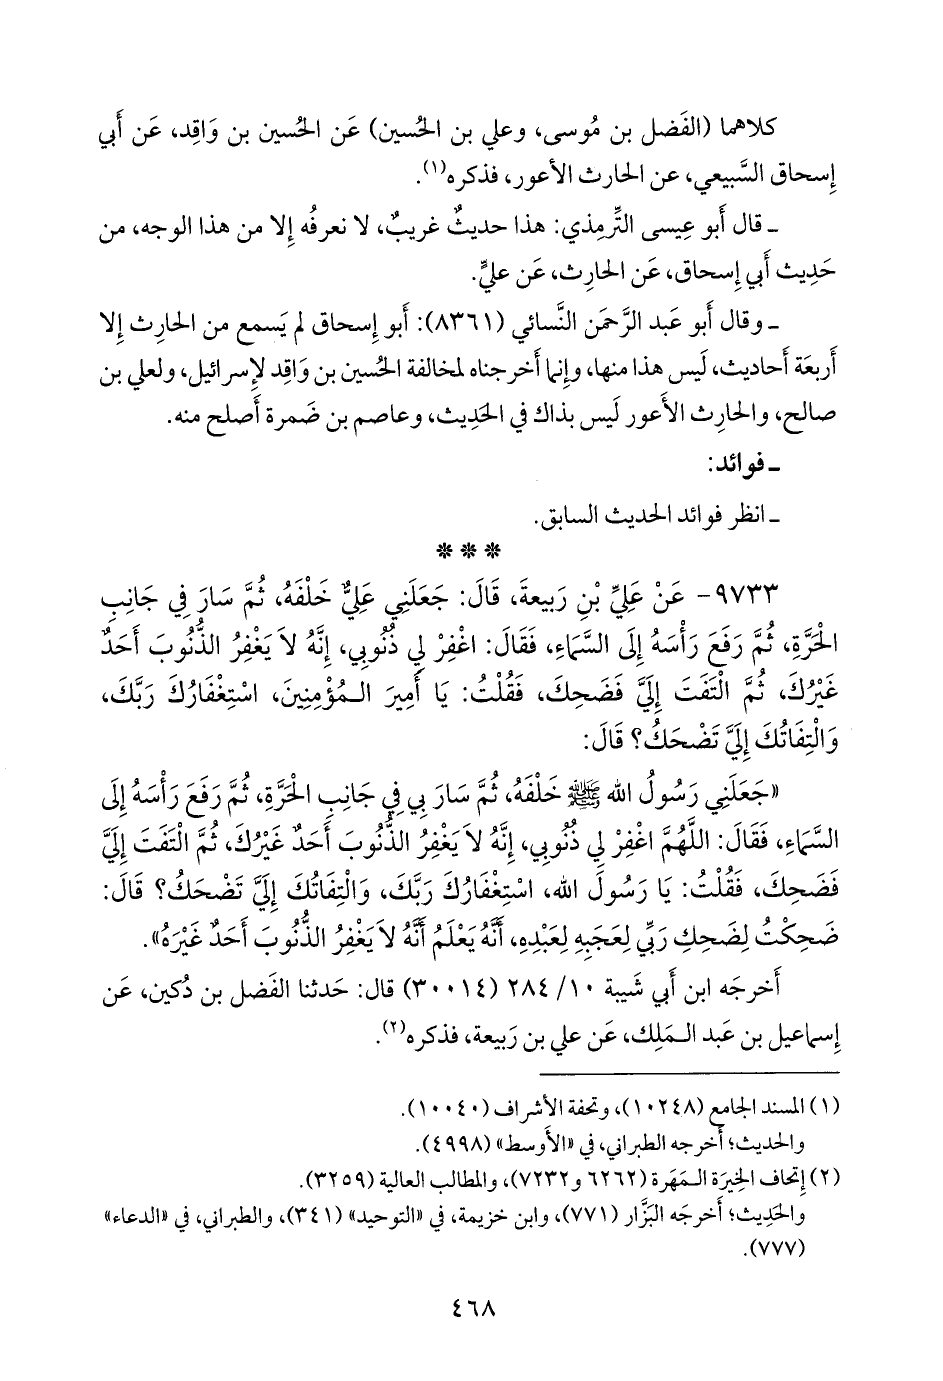 كلاهما (الفَضل بن مُوسى، وعلي بن الحُسين) عَن الحُسين بن وَاقِد، عَن أَبي
إِسحاق السَّبيعي، عن الحارث الأعور، فذكره(١).
ـ قال أَبو عِيسى التِّرمِذي: هذا حديثٌ غريبٌ، لا نعرفُه إِلا من هذا الوجه، من
حَدِيث أَبي إِسحاق، عَن الحارِث، عَن عليٍّ.
ـ وقال أَبو عَبد الرَّحمَن النَّسائي (٨٣٦١): أَبو إِسحاق لم يَسمع من الحارِث إِلا
أَربعَة أَحاديث، لَيس هذا منها، وإِنما أَخرجناه لمخالفة الحُسين بن وَاقِد لإِسرائيل، ولعلي بن
صالح، والحارِث الأَعور لَيس بذاك في الحَدِيث، وعاصم بن ضَمرة أَصلح منه.
ـ فوائد:
ـ انظر فوائد الحديث السابق.
* * *
٩٧٣٣- عَنْ عَلِيِّ بْنِ رَبِيعةَ، قَالَ: جَعَلَنِي عَلِيٌّ خَلْفَهُ، ثُمَّ سَارَ فِي جَانِبِ
الْحَرَّةِ، ثُمَّ رَفَعَ رَأْسَهُ إِلَى السَّمَاءِ، فَقَالَ: اغْفِرْ لِي ذُنُوبِي، إِنَّهُ لاَ يَغْفِرُ الذُّنُوبَ أَحَدٌ
غَيْرُكَ، ثُمَّ الْتَفَتَ إِلَيَّ فَضَحِكَ، فَقُلْتُ: يَا أَمِيرَ الـمُؤْمِنِينَ، اسْتِغْفَارُكَ رَبَّكَ،
وَالْتِفَاتُكَ إِلَيَّ تَضْحَكُ؟ قَالَ:
«جَعَلَنِي رَسُولُ الله ﷺ خَلْفَهُ، ثُمَّ سَارَ بِي فِي جَانِبِ الْحَرَّةِ، ثُمَّ رَفَعَ رَأْسَهُ إِلَى
السَّمَاءِ، فَقَالَ: اللَّهُمَّ اغْفِرْ لِي ذُنُوبِي، إِنَّهُ لاَ يَغْفِرُ الذُّنُوبَ أَحَدٌ غَيْرُكَ، ثُمَّ الْتَفَتَ إِلَيَّ
فَضَحِكَ، فَقُلْتُ: يَا رَسُولَ الله، اسْتِغْفَارُكَ رَبَّكَ، وَالْتِفَاتُكَ إِلَيَّ تَضْحَكُ؟ قَالَ:
ضَحِكْتُ لِضَحِكِ رَبِّي لِعَجَبِهِ لِعَبْدِهِ، أَنَّهُ يَعْلَمُ أَنَّهُ لاَ يَغْفِرُ الذُّنُوبَ أَحَدٌ غَيْرَهُ».
أَخرجَه ابن أَبي شَيبة ١٠/ ٢٨٤ (٣٠٠١٤) قال: حَدثنا الفَضل بن دُكين، عَن
إِسماعيل بن عَبد الـمَلِك، عَن علي بن رَبيعة، فذكره(٢).
(١) المسند الجامع (١٠٢٤٨)، وتحفة الأشراف (١٠٠٤٠).
والحديث؛ أَخرجه الطبراني، في «الأَوسط» (٤٩٩٨).
(٢) إِتحاف الخِيرَة الـمَهَرة (٦٢٦٢ و٧٢٣٢)، والمطالب العالية (٣٢٥٩).
والحَدِيث؛ أَخرجَه البَزَّار (٧٧١)، وابن خزيمة، في «التوحيد» (٣٤١)، والطبراني، في «الدعاء»
(٧٧٧).
٤٦٨